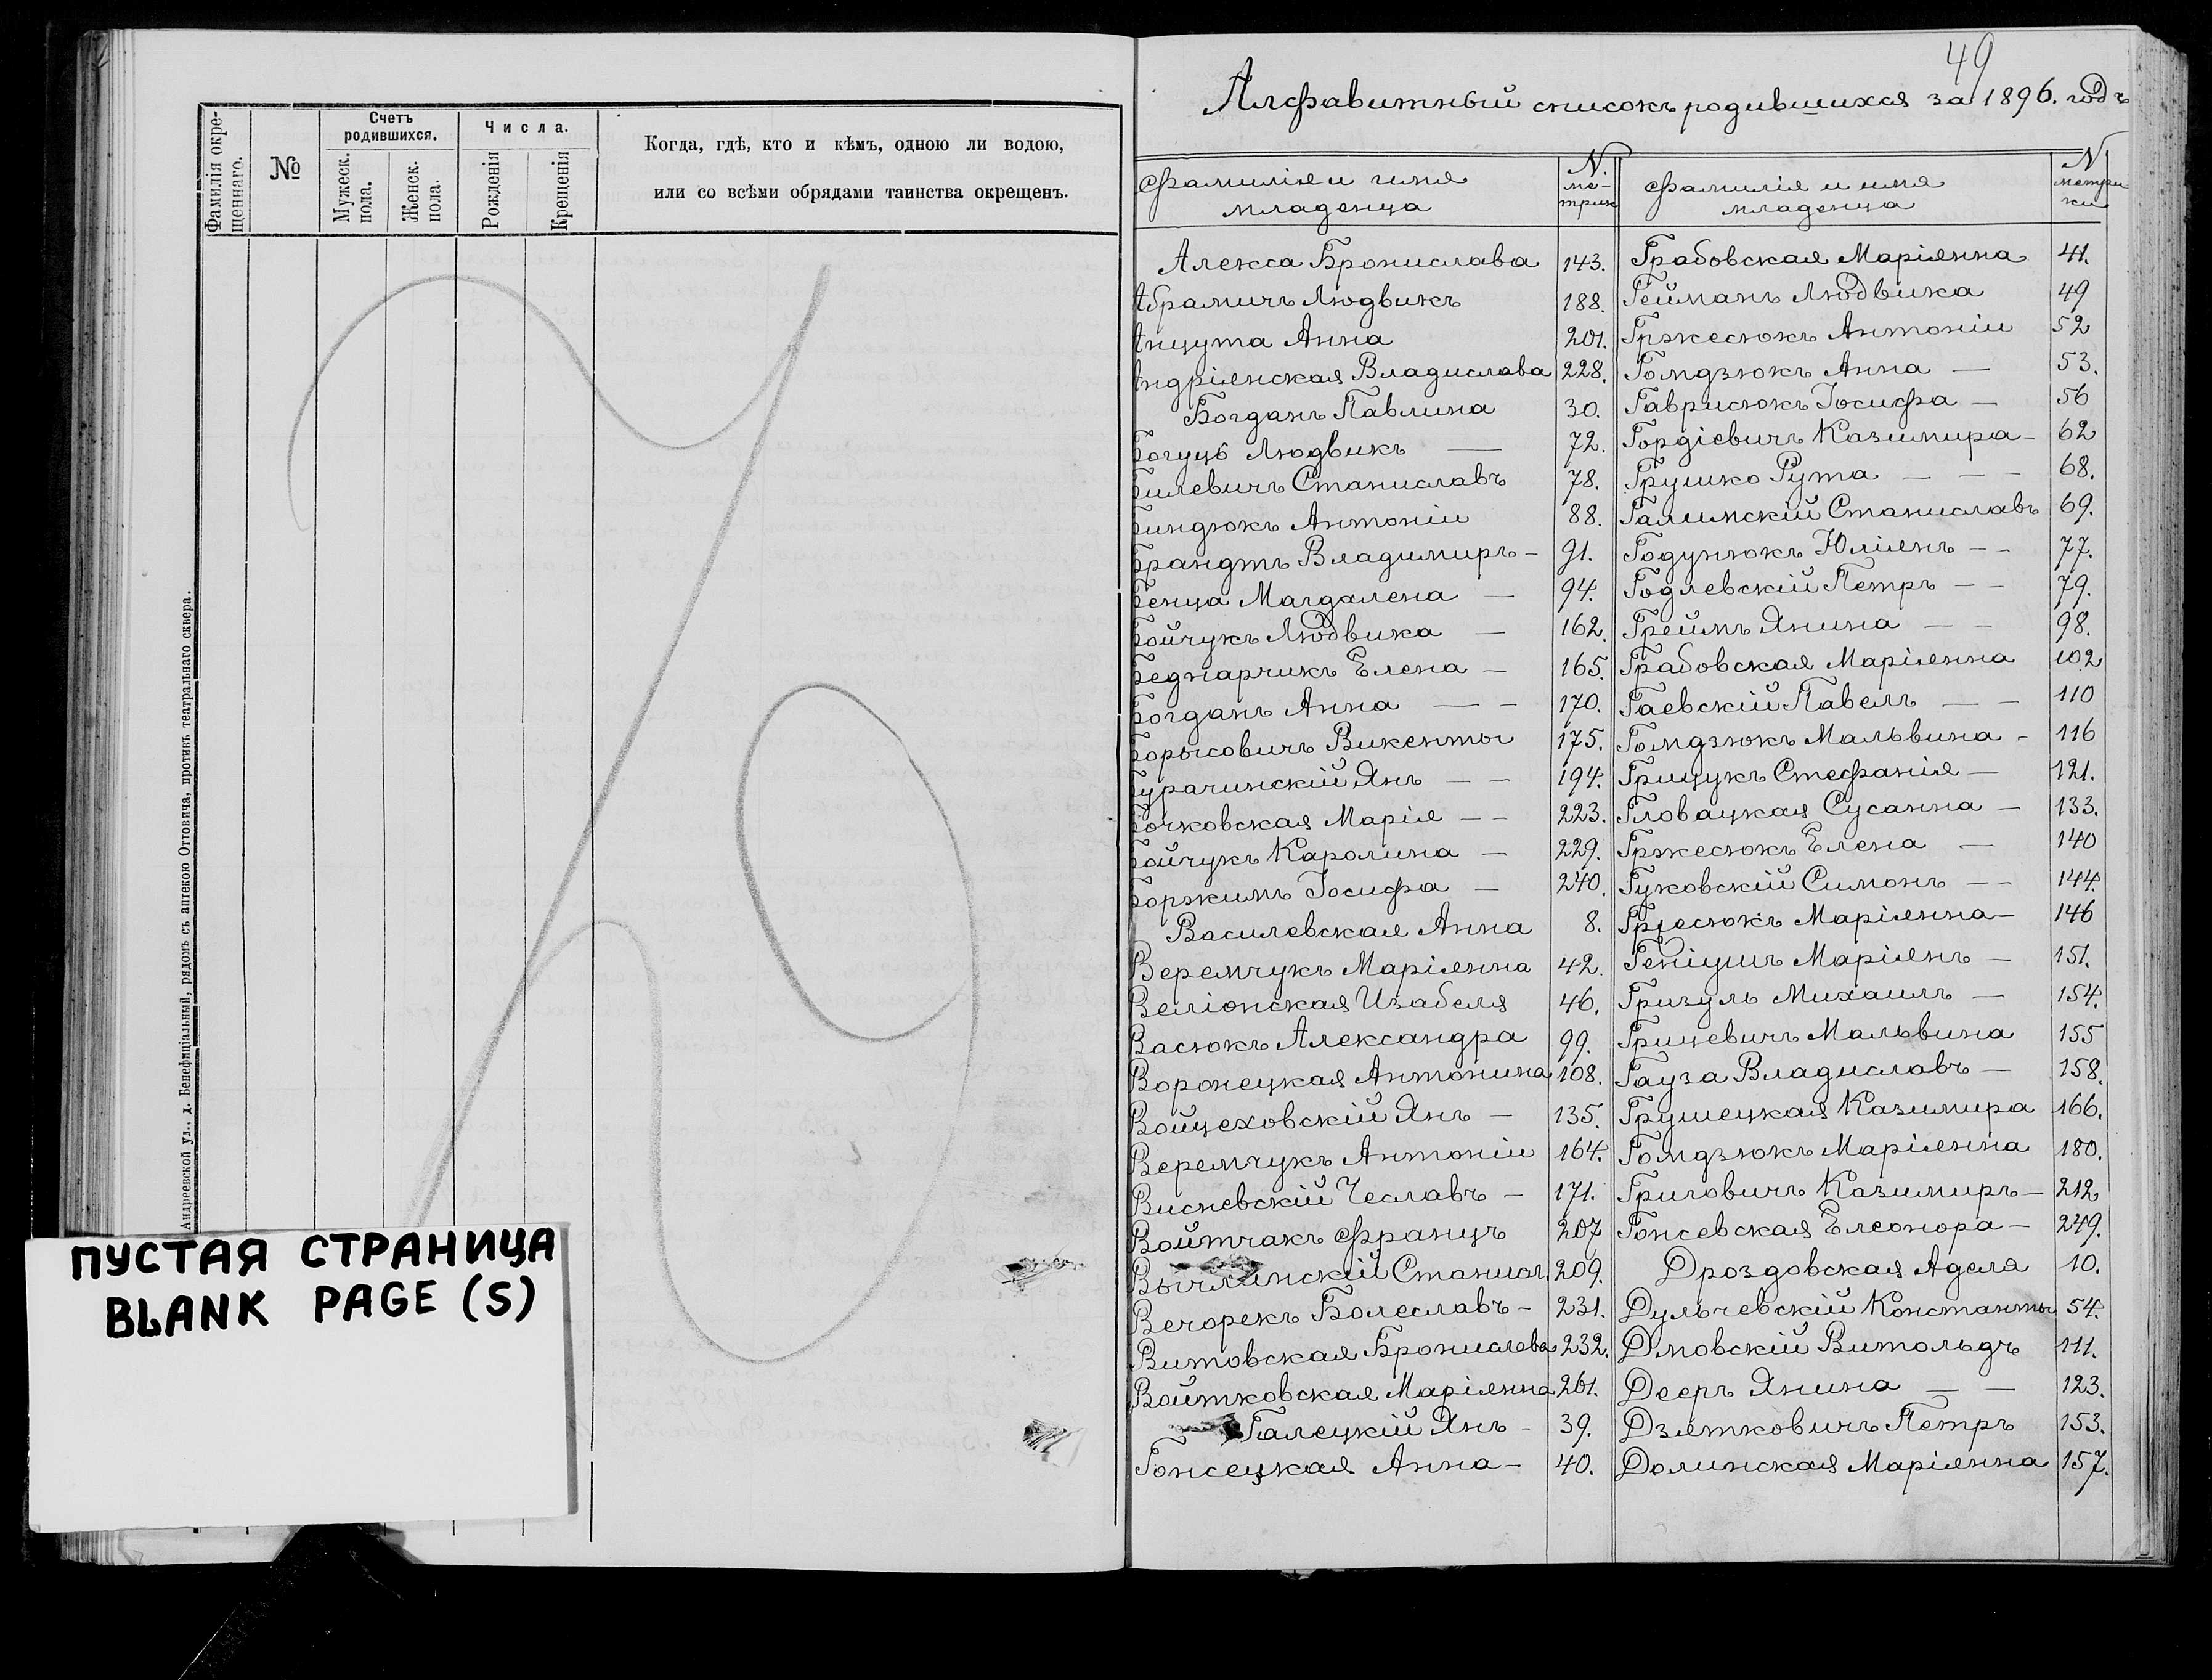 Фамилія окре-
щеннаго.
№
Счетъ
родившихся.
Мужеск.
пола.
Женск.
пола.
Числа.
Рожденія
Крещенія
Когда, гдѣ, кто и кѣмъ, одною ли водою,
или со всѣми обрядами таинства окрещенъ.
Андреевской ул., д. Бенефиціальный, рядомъ съ аптекою Оттовича, противъ театральнаго сквера.
ПУСТАЯ СТРАНИЦА
BLANK PAGE (S)
49
Алфавитный списокъ родившихся за 1896. годъ
Фамилія и имя
младенца
N.
ме-
трик
Алекса Бронислава 143.
Абрамичъ Людвикъ 188.
Анцута Анна 201.
Андріянская Владислава 228.
Богданъ Павлина 30.
Богуцъ Людвикъ — 72.
Билевичъ Станиславъ 78.
Биндюкъ Антоніи 88.
Брандтъ Владимиръ - 91.
Бенца Магдалена — 94.
Бойчукъ Людвика — 162.
Беднарчикъ Елена — 165.
Богданъ Анна — — 170.
Борысовичъ Викенты 175.
Бурачинскій Янъ — — 194.
Бочковская Марія — — 223.
Бойчукъ Каролина — 229.
Боржимъ Іосифа — 240.
Василевская Анна 8.
Веремчукъ Маріянна 42.
Веліонская Изабеля 46.
Васюкъ Александра 99.
Воронецкая Антонина 108.
Войцеховскій Янъ — 135.
Веремчукъ Антоніи 164.
Висневскій Чеславъ — 171.
Войтчакъ Францъ 207
Вычлинскій Станисл. 209.
Вечорекъ Болеславъ - 231.
Витовская Брониславa 232.
Войтковская Маріянна 261.
Галецкій Янъ - 39.
Гонсецкая Анна — 40.
Фамилія и имя
младенца
N
метри
ки
Грабовская Маріянна 41.
Гейманъ Людвика 49
Гржесюкъ Антоніи 52
Гомдзюкъ Анна — 53.
Гаврисюкъ Іосифа — 56
Гордіевичъ Казимира - 62
Грушко Рута — — — 68.
Галимскій Станиславъ 69.
Годунюкъ Юліянъ — — 77.
Годлевскій Петръ — — 79.
Греймъ Янина — — 98.
Грабовская Маріянна 102
Гаевскій Павелъ — — 110
Гомдзюкъ Мальвина - 116
Грицукъ Стефанія — 121.
Гловацкая Сусанна — 133.
Гржесюкъ Елена — 140
Гуковскій Симонъ — — 144.
Маріянна — 146
Геніушъ Маріянъ — 151.
Гризуль Михаилъ — 154.
Грицевичъ Мальвина 155
Гауза Владиславъ — 158.
Грушецкая Казимира 166.
Гомдзюкъ Маріянна 180.
Григовичъ Казимиръ — 212
Гонсевская Елеонора — 249.
Дроздовская Аделя 10.
Дульчевскій Константы 54.
Дмовскій Витольдъ 111.
Дееръ Янина — — 123.
Дзятковичъ Петръ 153.
Долинская Маріянна 157.